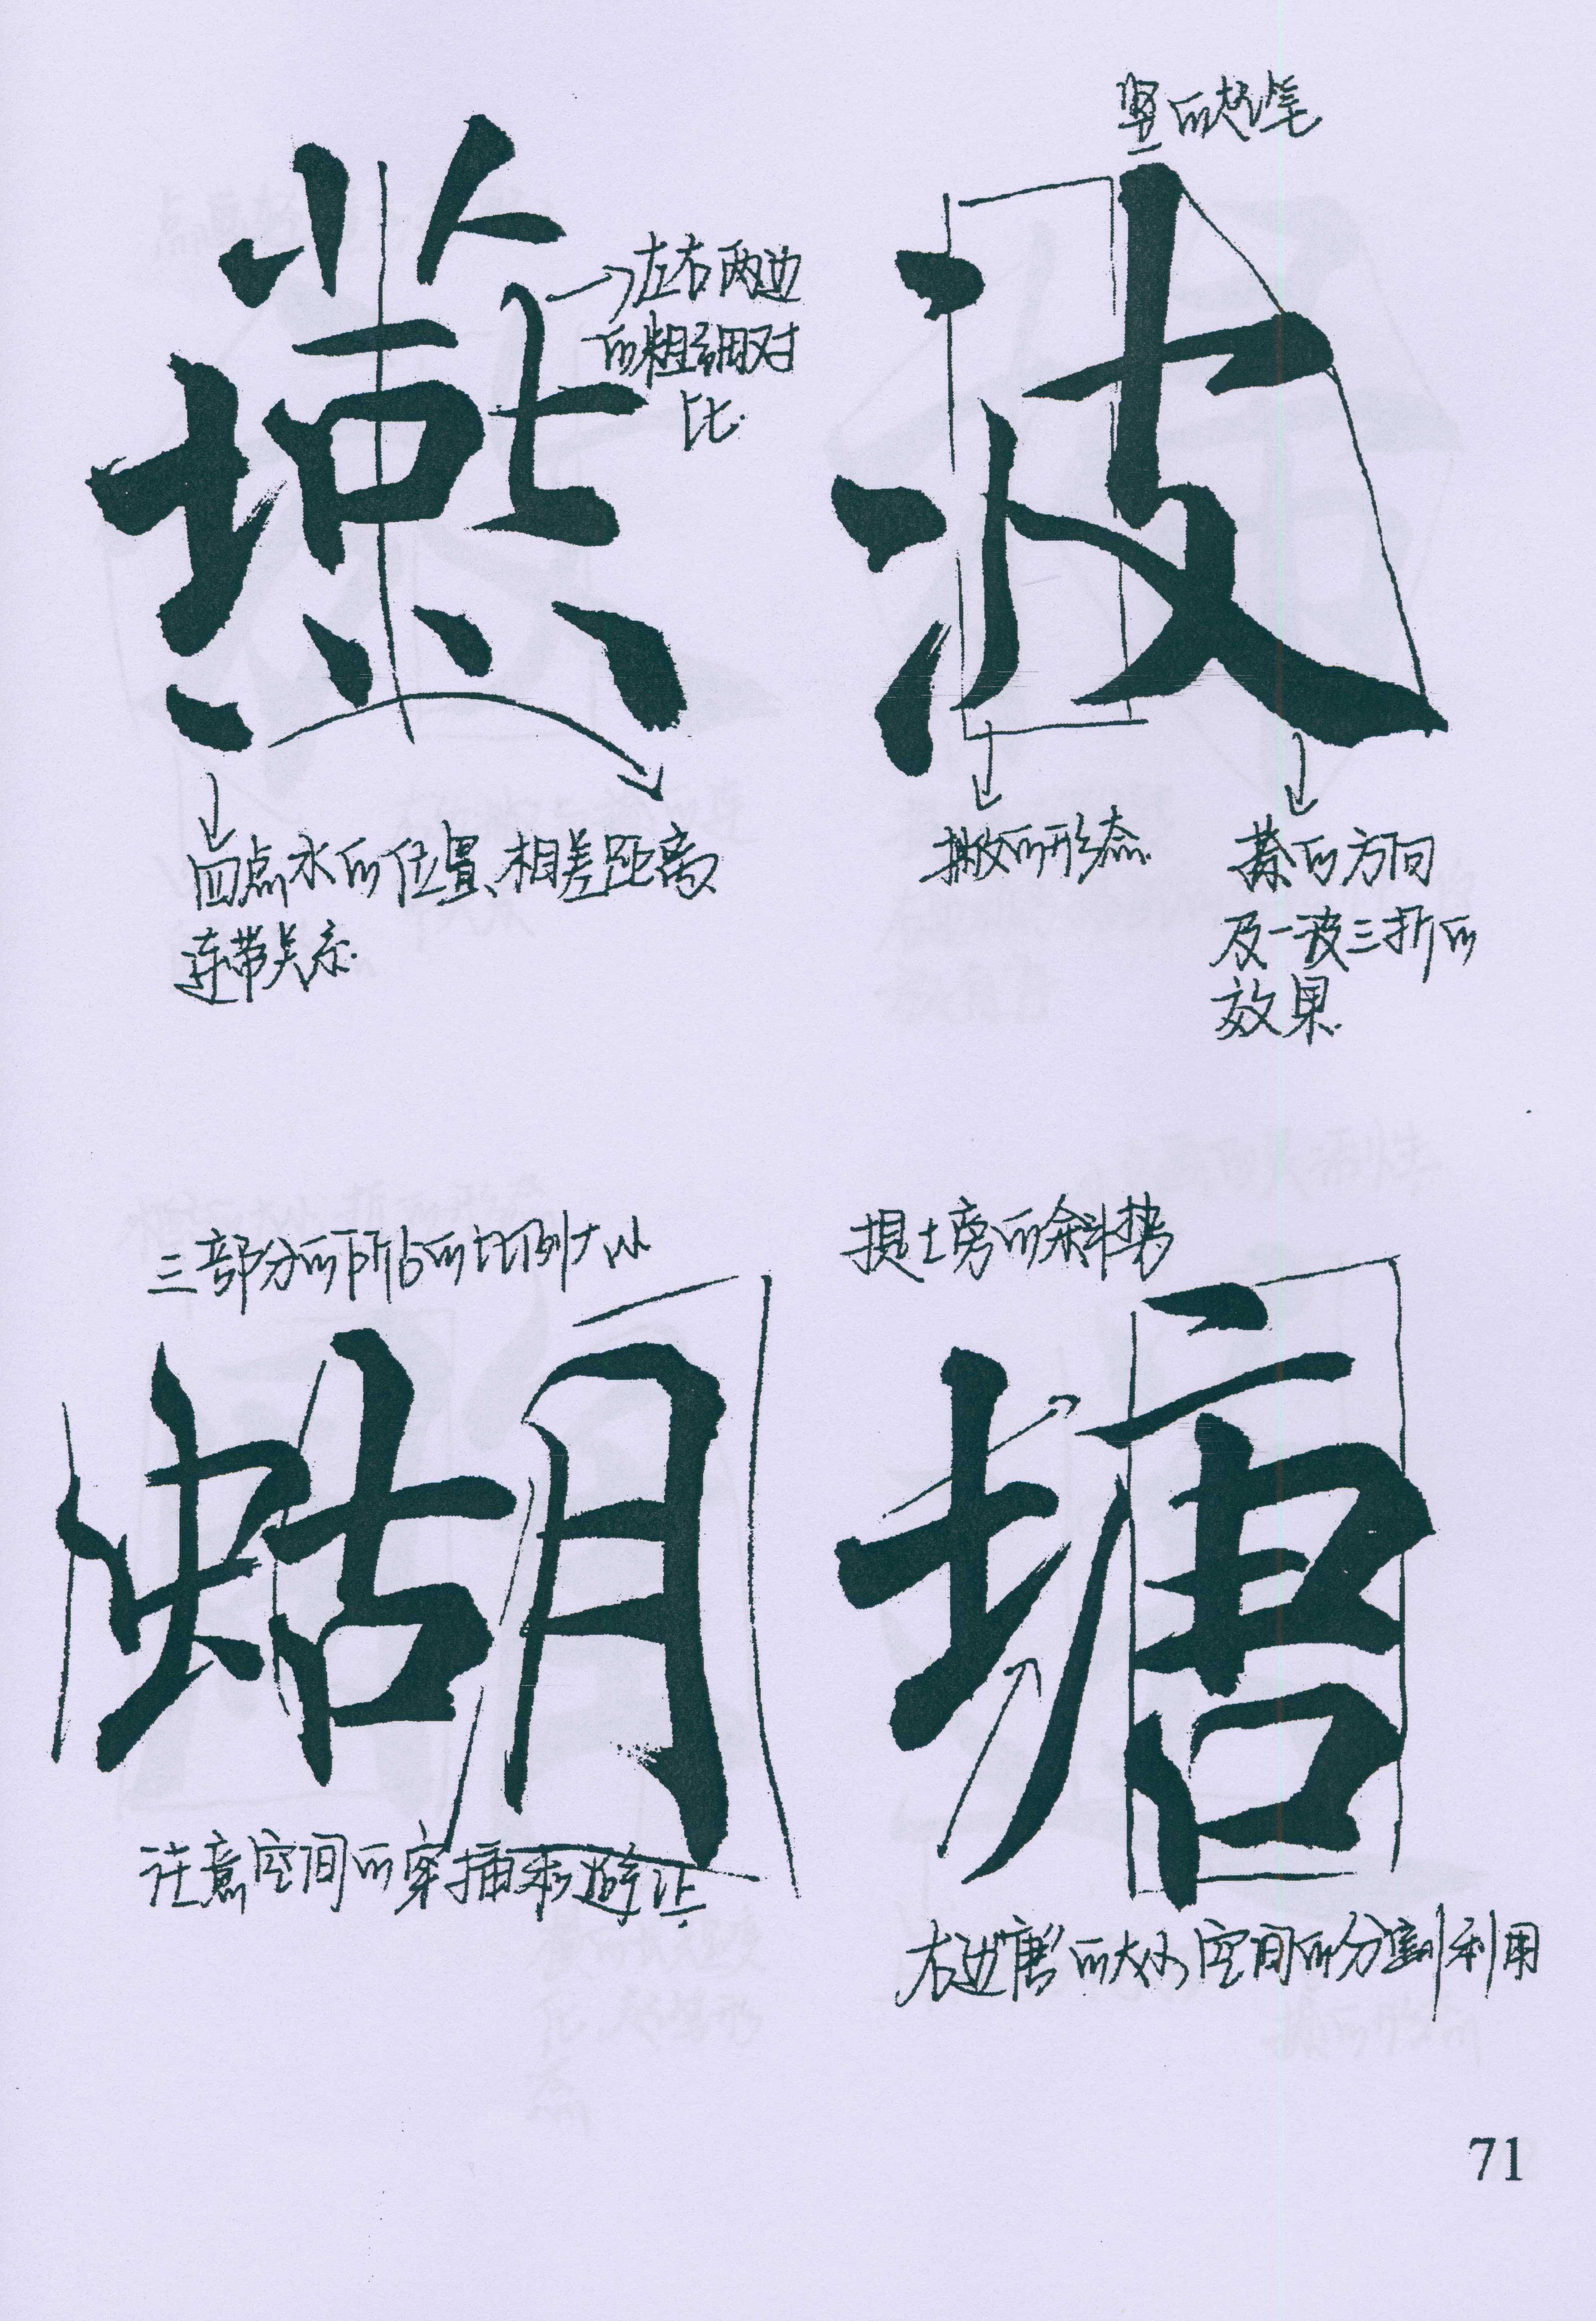 竖的起笔
燕
波
→左右两边
的粗细对
比.
四点水的位置、相差距离
连带关系.
撇的形态.
捺的方向
及一波三折的
效果.
三部分的所占的比例大小
提土旁的斜势
蝴
塘
注意空间的穿插和避让.
右边“唐”的大小,空间的分割利用
71